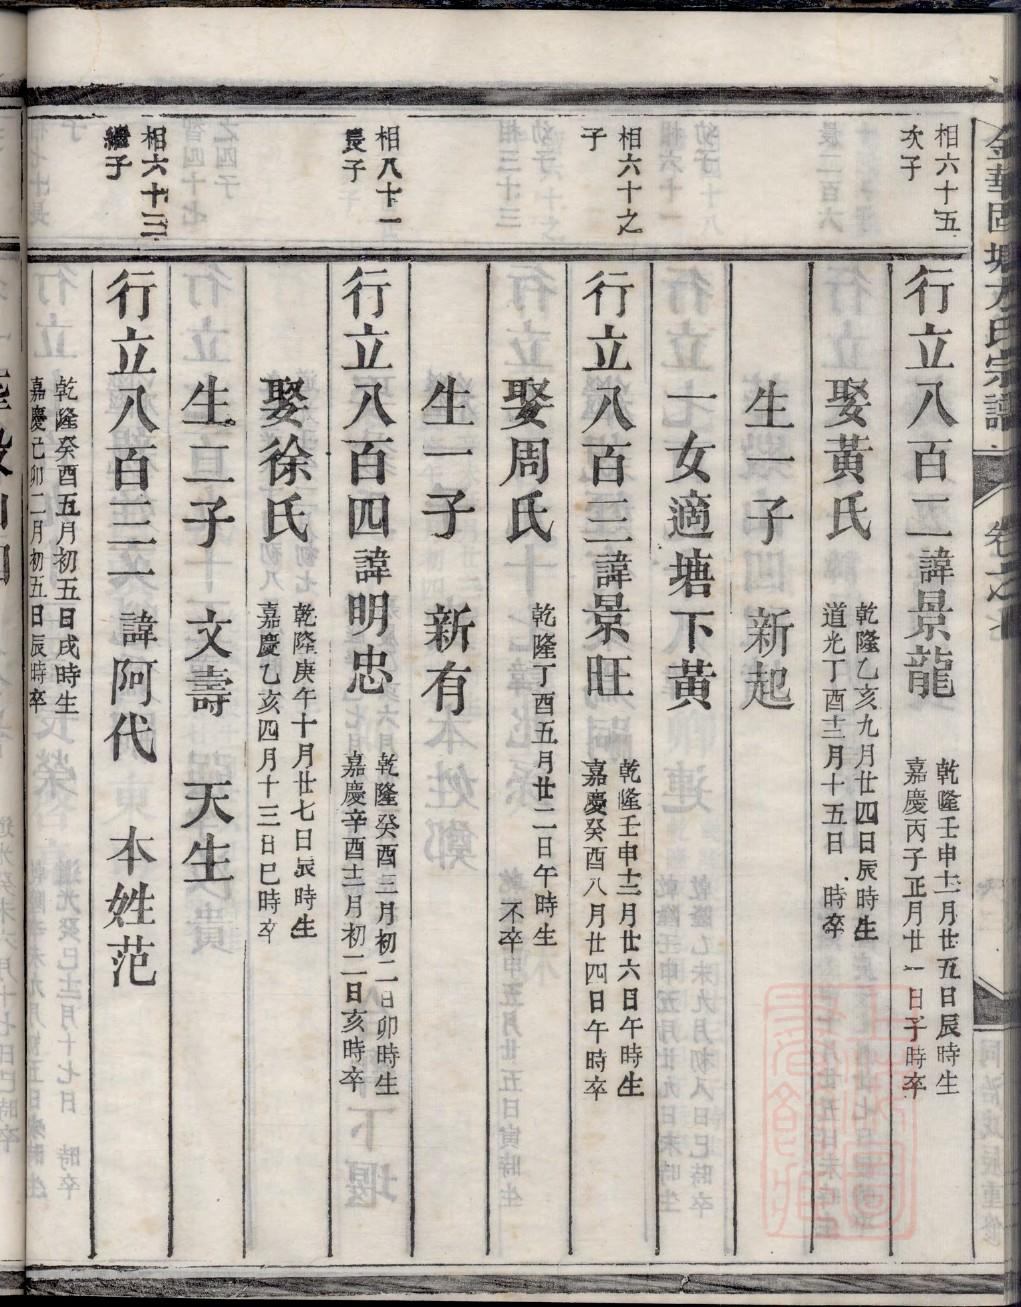 金華固塘方氏宗譜
卷之
同治戊辰重修
相六十五
次子
行立八百二諱景龍
乾隆壬申十二月廿五日辰時生
嘉慶丙子正月廿一日子時卒
娶黃氏
乾隆乙亥九月廿四日辰時生
道光丁酉十二月十五日 時卒
生一子 新起
一女適塘下黃
相六十之
子
行立八百三諱景旺
乾隆壬申十二月廿六日午時生
嘉慶癸酉八月廿四日午時卒
娶周氏
乾隆丁酉五月廿二日午時生
不卒
生一子 新有
相八十一
長子
行立八百四諱明忠
乾隆癸酉三月初二日卯時生
嘉慶辛酉十二月初二日亥時卒
娶徐氏
乾隆庚午十月廿七日辰時生
嘉慶乙亥四月十三日巳時卒
生二子 文壽 天生
相六十三
繼子
行立八百 諱阿代 本姓范
乾隆癸酉五月初五日戌時生
嘉慶己卯二月初五日辰時卒